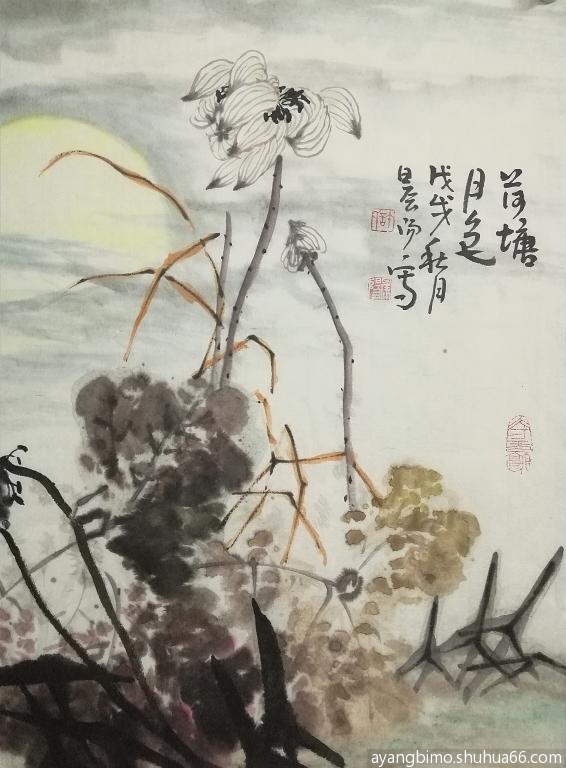 荷塘
月色
戊戌秋月
晨阳写
ayangbimo.shuhua66.com